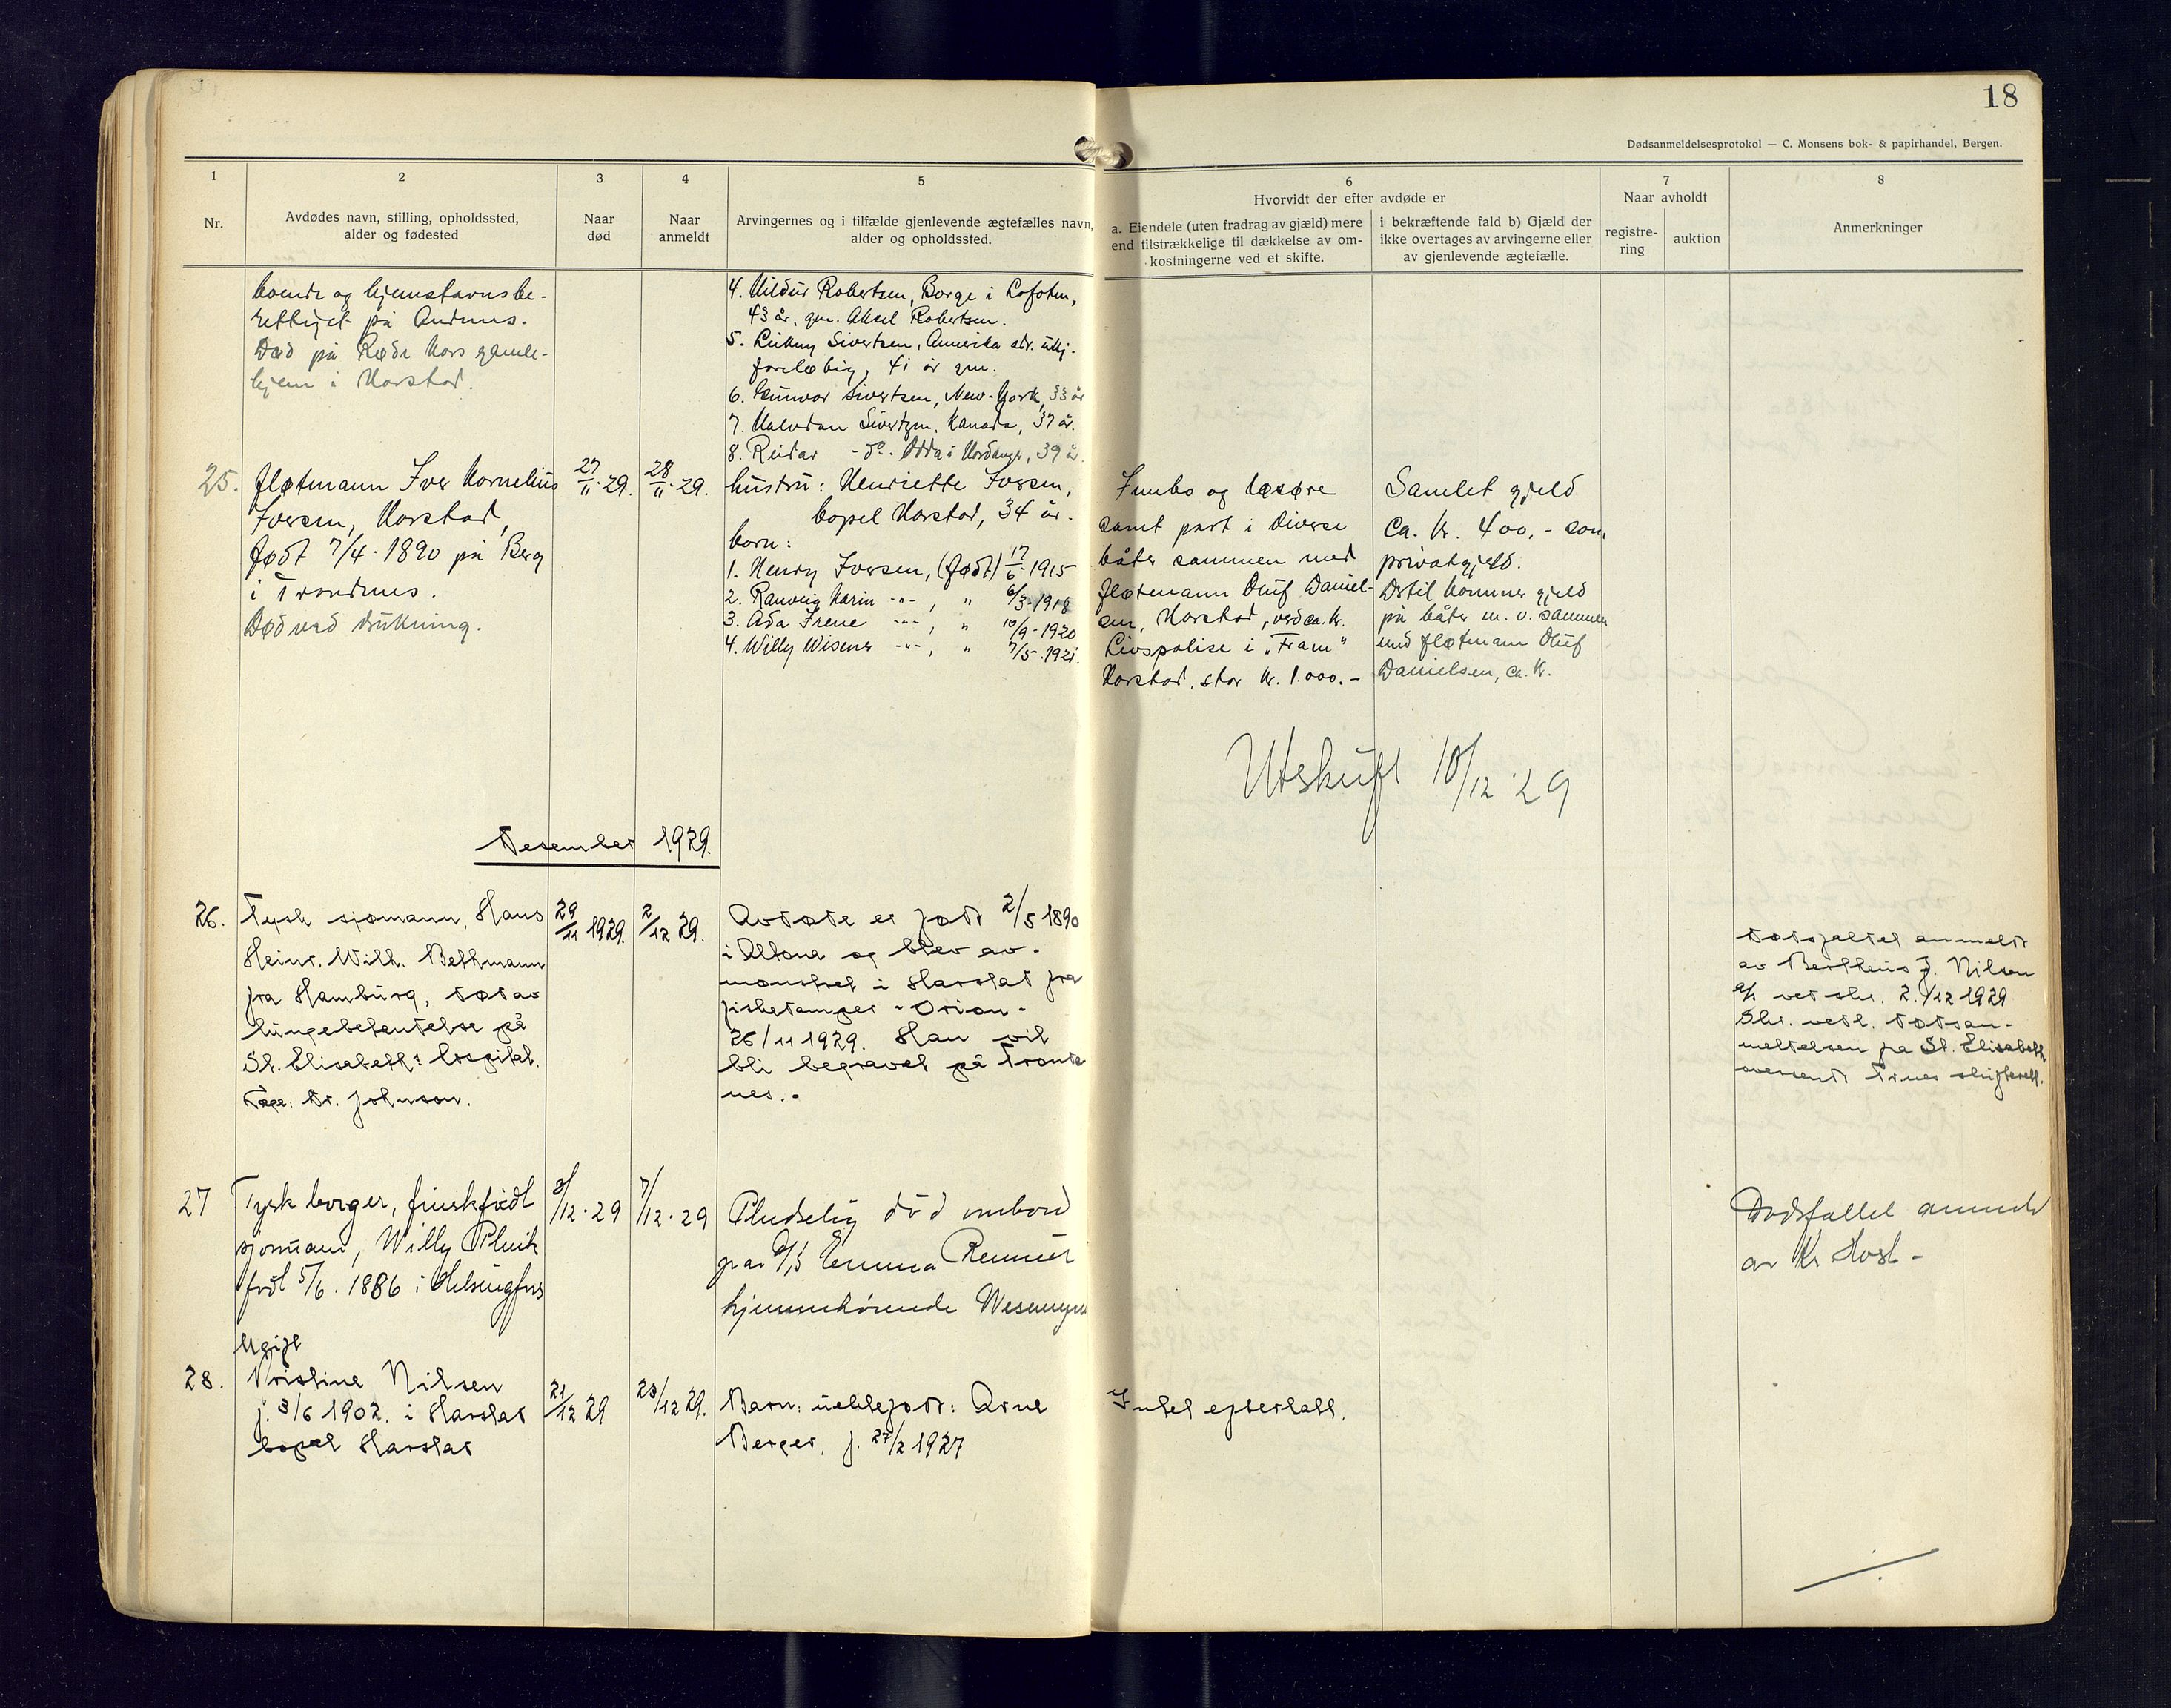 18
Dødsanmeldelsesprotokol — C. Monsens bok- & papirhandel, Bergen.
1
Nr.
2
Avdødes navn, stilling, opholdssted,
alder og fødested
3
Naar
død
4
Naar
anmeldt
5
Arvingernes og i tilfælde gjenlevende ægtefælles navn,
alder og opholdssted.
6
Hvorvidt der efter avdøde er
a. Eiendele (uten fradrag av gjæld) mere
end tilstrækkelige til dækkelse av om-
kostningerne ved et skifte.
i bekræftende fald b) Gjæld der
ikke overtages av arvingerne eller
av gjenlevende ægtefælle.
7
Naar avholdt
registre-
ring
auktion
8
Anmerkninger
boende og hjemstavnsbe-
rettiget på Andenes.
Død på Røde Kors gamle-
hjem i Harstad.
4. Hildur Robertsen, Borge i Lofoten,
43 år, gm. Aksel Robertsen.
5. Sivertsen, Amerika adr. utkj.
foreløbig, 41 år gm.
6. Gunvor Sivertsen, New-York, 33 år
7. Halvdan Sivertsen, Kanada, 37 år.
8. Reidar -do- Odda i Hardanger, 39 år.
25.
fløtmann Iver Kornelius
Iversen, Harstad,
født 7/4-1890 på Berg
i Trondenes.
Død ved drukning.
27/11-29.
28/11-29.
hustru: Henriette Iversen,
bopel Harstad, 34 år.
barn:
1. Henry Iversen, (født) 17/6-1915
2. Ranveig Karin -"-, " 6/3-1918
3. Ada Irene -"-, " 10/9-1920
4. Willy Wisener -"-, " 7/5-1921.
Innbo og løsøre
samt part i diverse
båter sammen med
fløtmann Oluf Daniel-
sen, Harstad, verd ca. kr.
Livspolise i "Fram"
Harstad, stor kr. 1.000.-
Samlet gjeld
ca. kr. 400.- som
privatgjeld.
Dertil kommer gjeld
på båter m. v. sammen
med fløtmann Oluf
Danielsen, ca. kr.
Utskrift 10/12 29
Desember 1929.
26.
Tysk sjømann, Hans
Heinr. Wilh. Bethmann
fra Hamburg, død av
lungebetendelse på
St. Elisabeth: hospital.
Læge: Dr. Johnson.
29/11 1929.
2/12 29.
Avdøde er født 2/5 1890
i Altona og blev av-
mønstret i Harstad fra
fiskedamper "Orion"
26/11 1929. Han vil
bli begravet på Tronde
nes.
Dødsfallet anmeldt
av Bertheus J. Nilsen
a/s ved skr. 2./12 1929
Skr. vedl. dødsan-
meldelsen fra St. Elisabeth
oversendt Trnes skifterett.
27
Tysk borger, finskfödt
sjømann, Willy Plink
född 5/6. 1886 i Helsingfors
Ugift
3/12-29
7/12-29
Pludselig död ombord
par D/S Emma Remmer
hjemmehörende Wesermynde
Dødsfallet anmeldt
av Kr Host -
28.
Kristine Nilsen
f. 3/6 1902. i Harstad
bopæl Harstad
21/12 29
23/12 29.
Barn: uektefødt: Arne
Berger, f. 27/2 1927
Intet efterlatt.